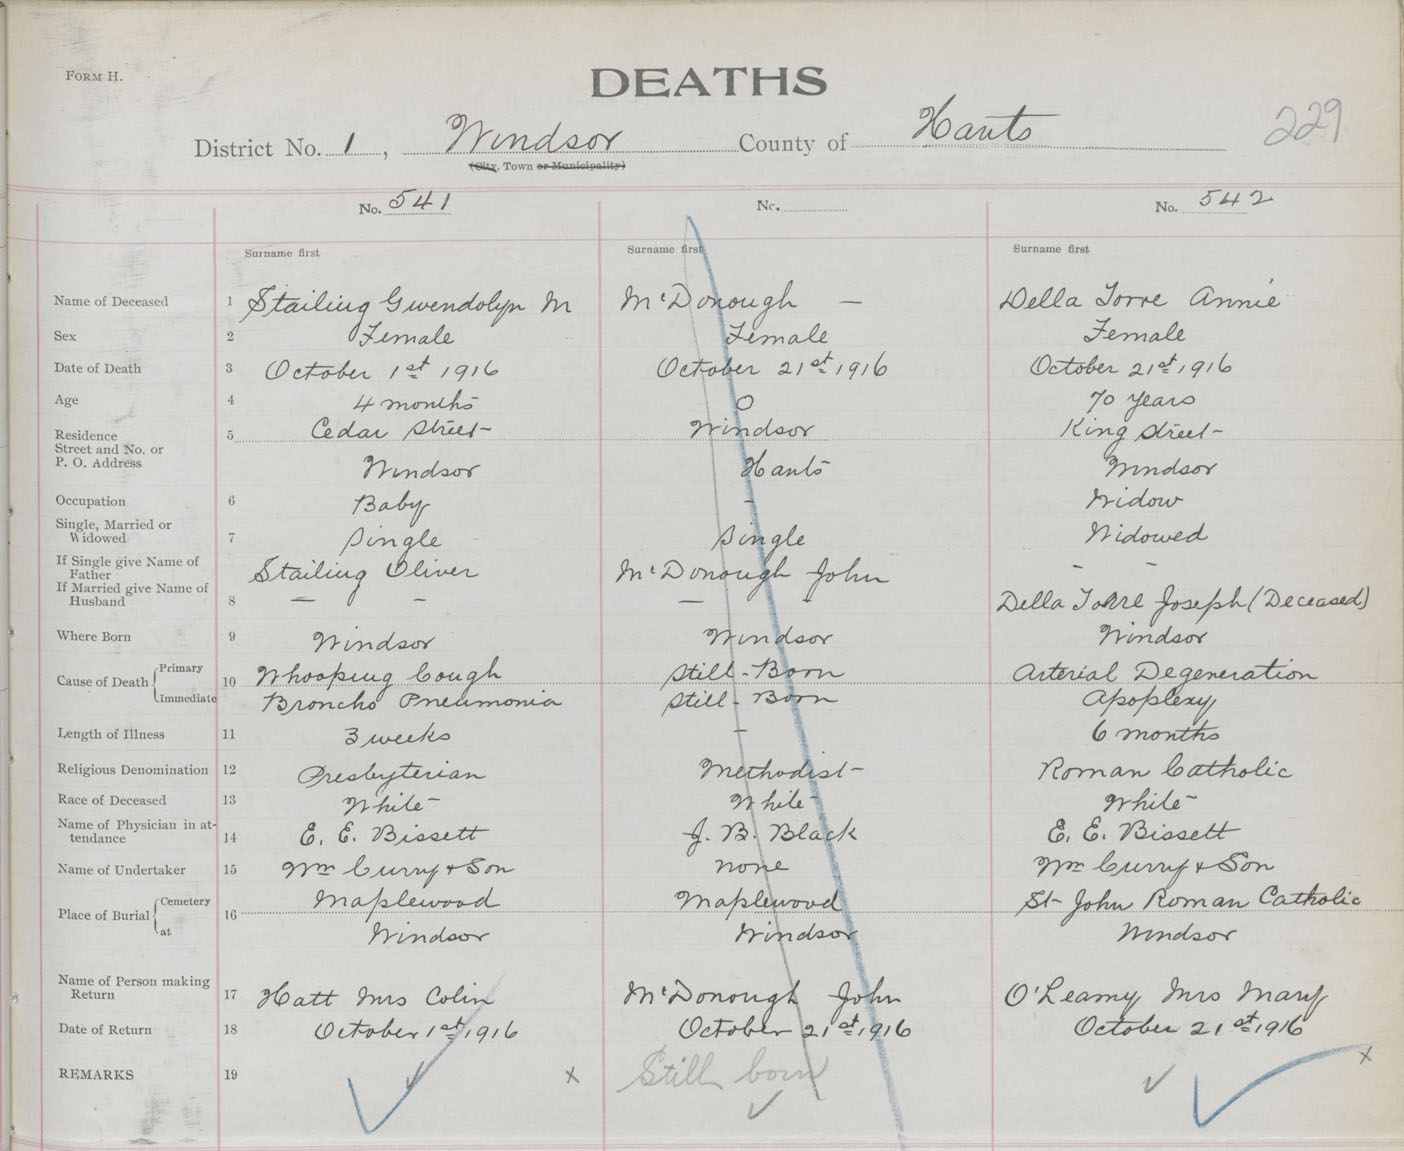 FORM H.
DEATHS
229
District No. 1, Windsor County of Hants
(City, Town or Municipality)
No. 541 No. No. 542
Surname first Surname first Surname first
Name of Deceased 1 Stailing Gwendolyn M McDonough — Della Torre Annie
Sex 2 Female Female Female
Date of Death 3 October 1st 1916 October 21st 1916 October 21st 1916
Age 4 4 months 0 70 years
Residence 5 Cedar Street Windsor King Street
Street and No. or
P. O. Address Windsor Hants Windsor
Occupation 6 Baby - Widow
Single, Married or
Widowed 7 Single Single Widowed
If Single give Name of
Father Stailing Oliver McDonough John - -
If Married give Name of
Husband 8 — - — - Della Torre Joseph (Deceased)
Where Born 9 Windsor Windsor Windsor
Cause of Death Primary 10 Whooping Cough Still-Born Arterial Degeneration
Immediate Broncho Pneumonia Still-Born Apoplexy
Length of Illness 11 3 weeks - 6 months
Religious Denomination 12 Presbyterian Methodist Roman Catholic
Race of Deceased 13 White White White
Name of Physician in at-
tendance 14 E. E. Bissett J. B. Black E. E. Bissett
Name of Undertaker 15 Wm Curry + Son none Wm Curry + Son
Place of Burial Cemetery 16 Maplewood Maplewood St John Roman Catholic
at Windsor Windsor Windsor
Name of Person making
Return 17 Hatt Mrs Colin McDonough John O'Leamy Mrs Mary
Date of Return 18 October 1st 1916 October 21st 1916 October 21st 1916
REMARKS 19 x Still born x